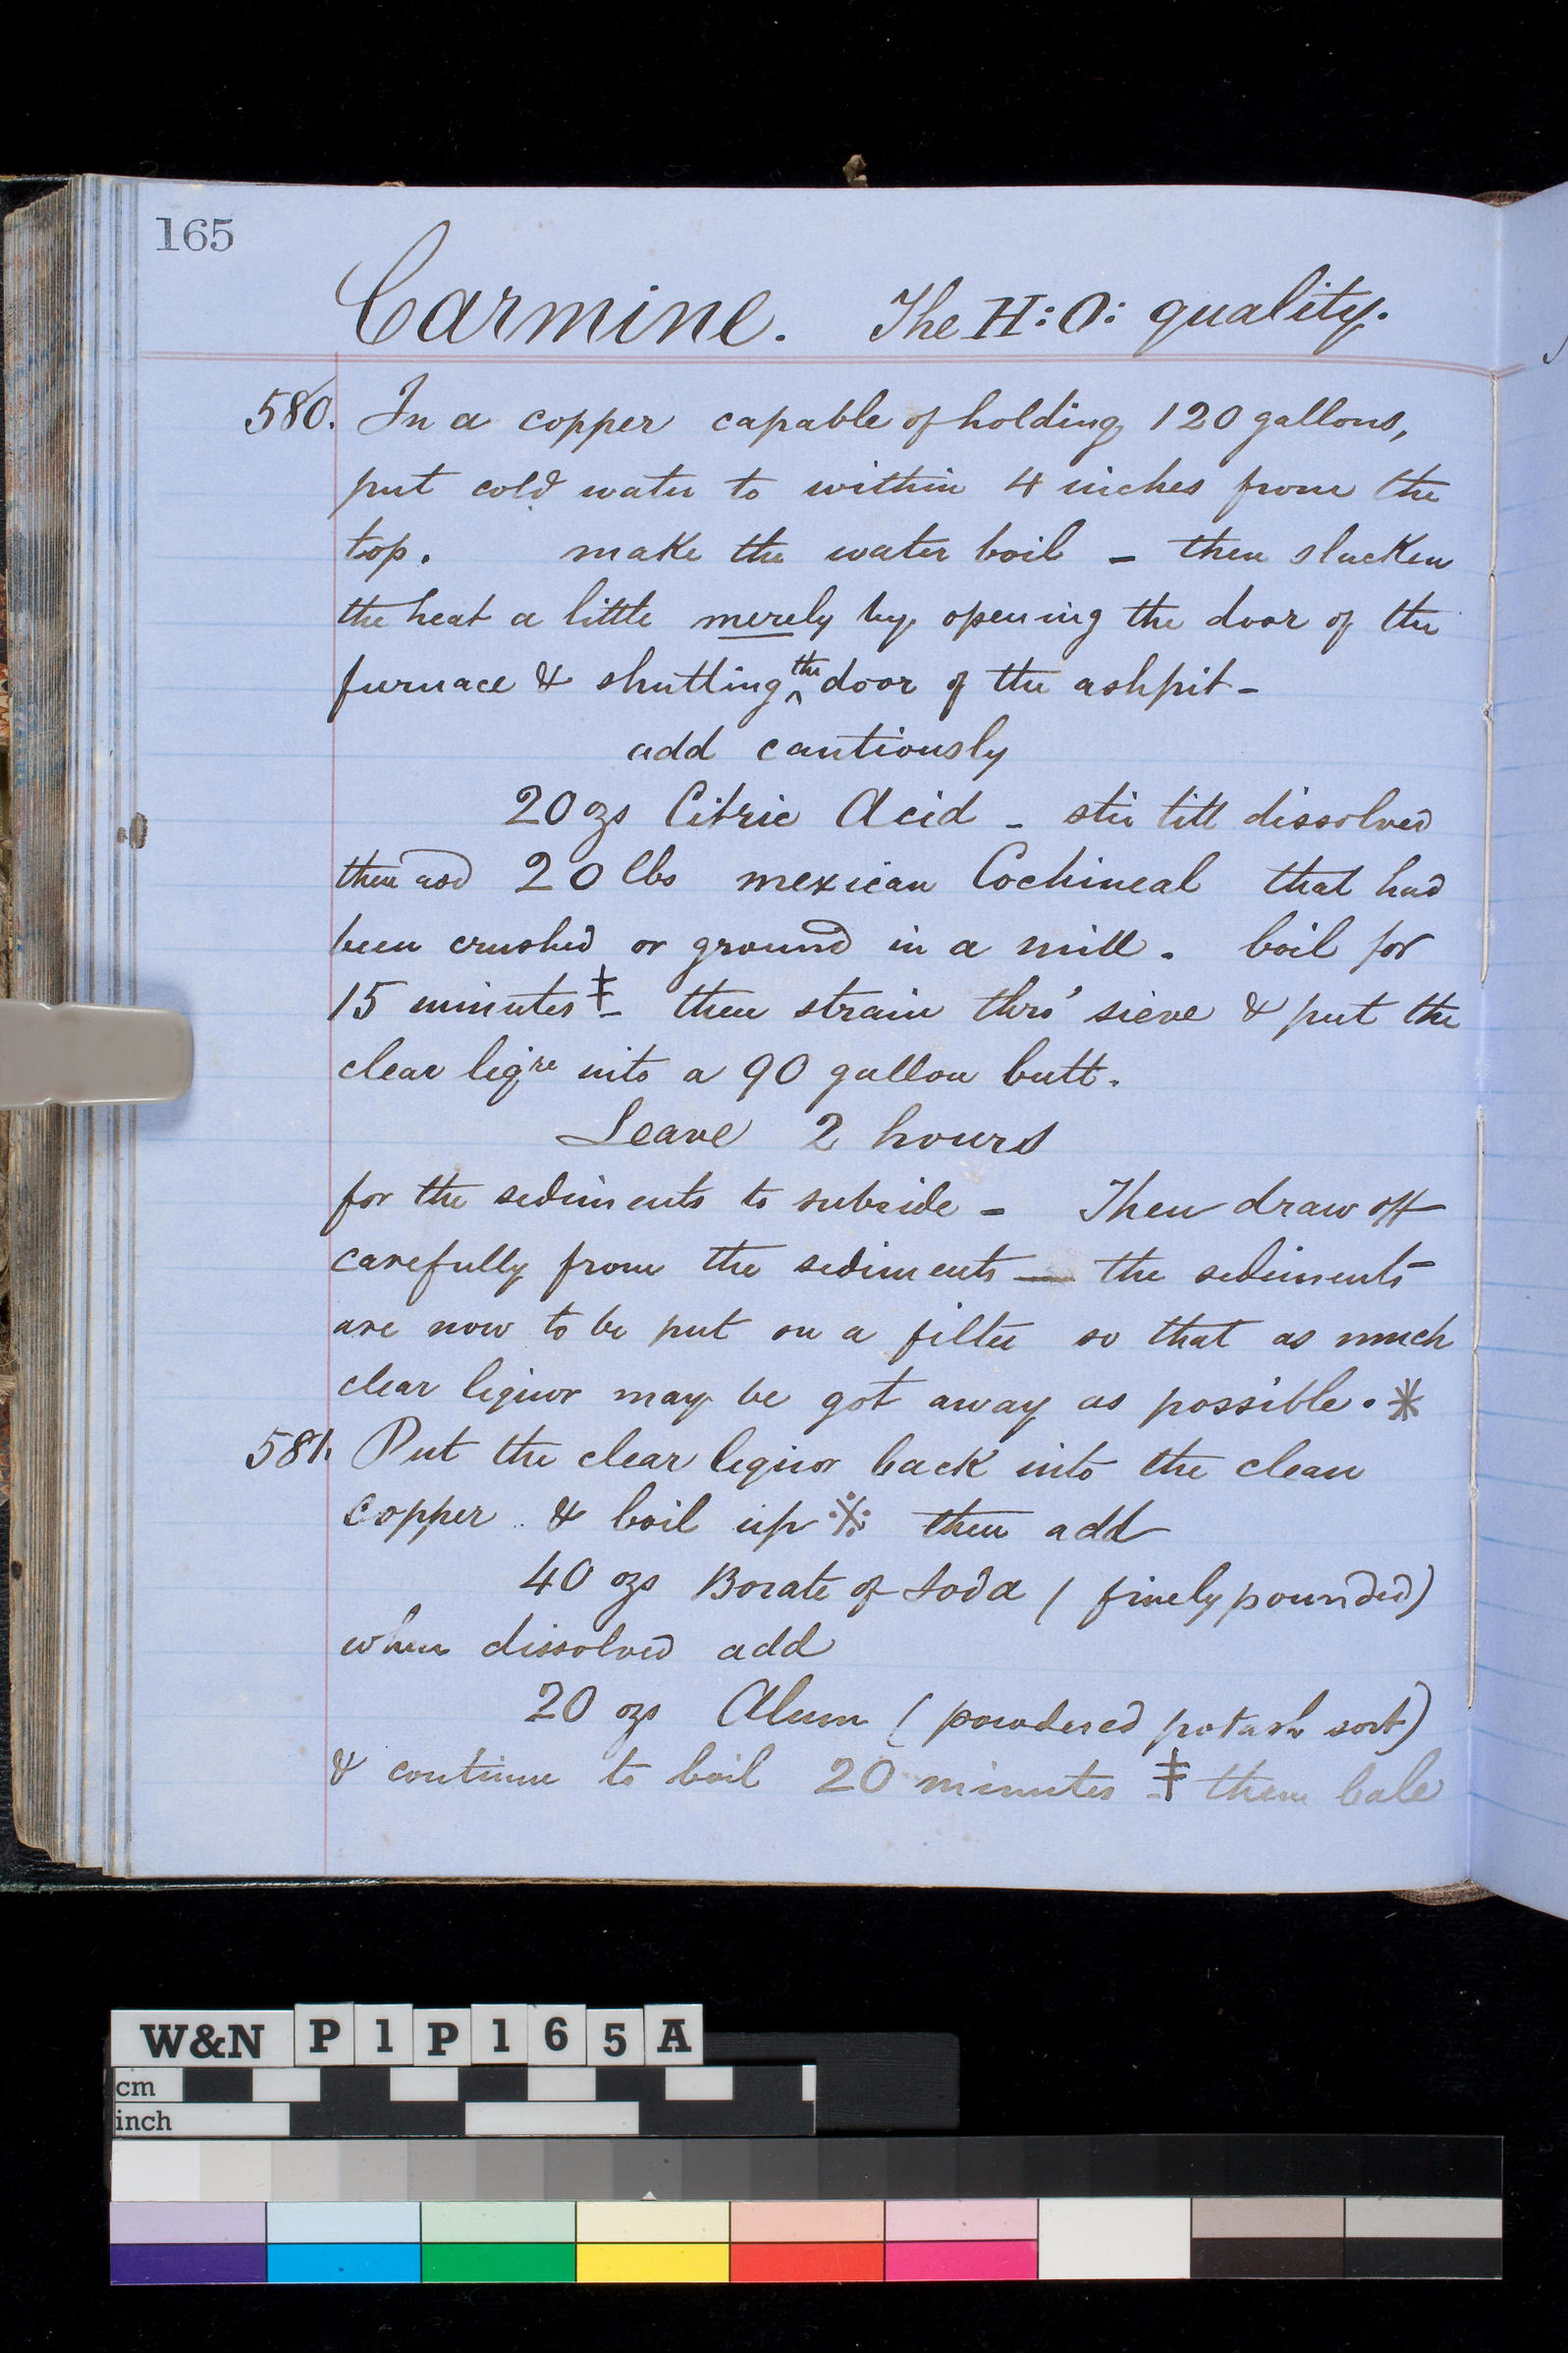 165
Carmine. The H:O: quality.
580. In a copper capable of holding 120 gallons,
put cold water to within 4 inches from the
top. make the water boil – then slacken
the heat a little merely by opening the door of the
furnace & shutting ^the door of the ashpit –
add cautiously
20 ozs Citric Acid – stir till dissolved
then add 20 lbs mexican Cochineal that had
been crushed or ground in a mill. boil for
15 minutes ‡ – then strain thro' sieve & put the
clear liqre into a 90 gallon butt.
Leave 2 hours
for the sediments to subside – Then draw off
carefully from the sediments — the sediments
are now to be put on a filter so that as much
clear liquor may be got away as possible. *
581. Put the clear liquor back into the clean
copper & boil up ※ then add
40 ozs Borate of Soda ( finely pounded)
when dissolved add
20 ozs Alum ( powdered potash sort)
& continue to boil 20 minutes ‡ then bale
W&N P1P165A
cm
inch